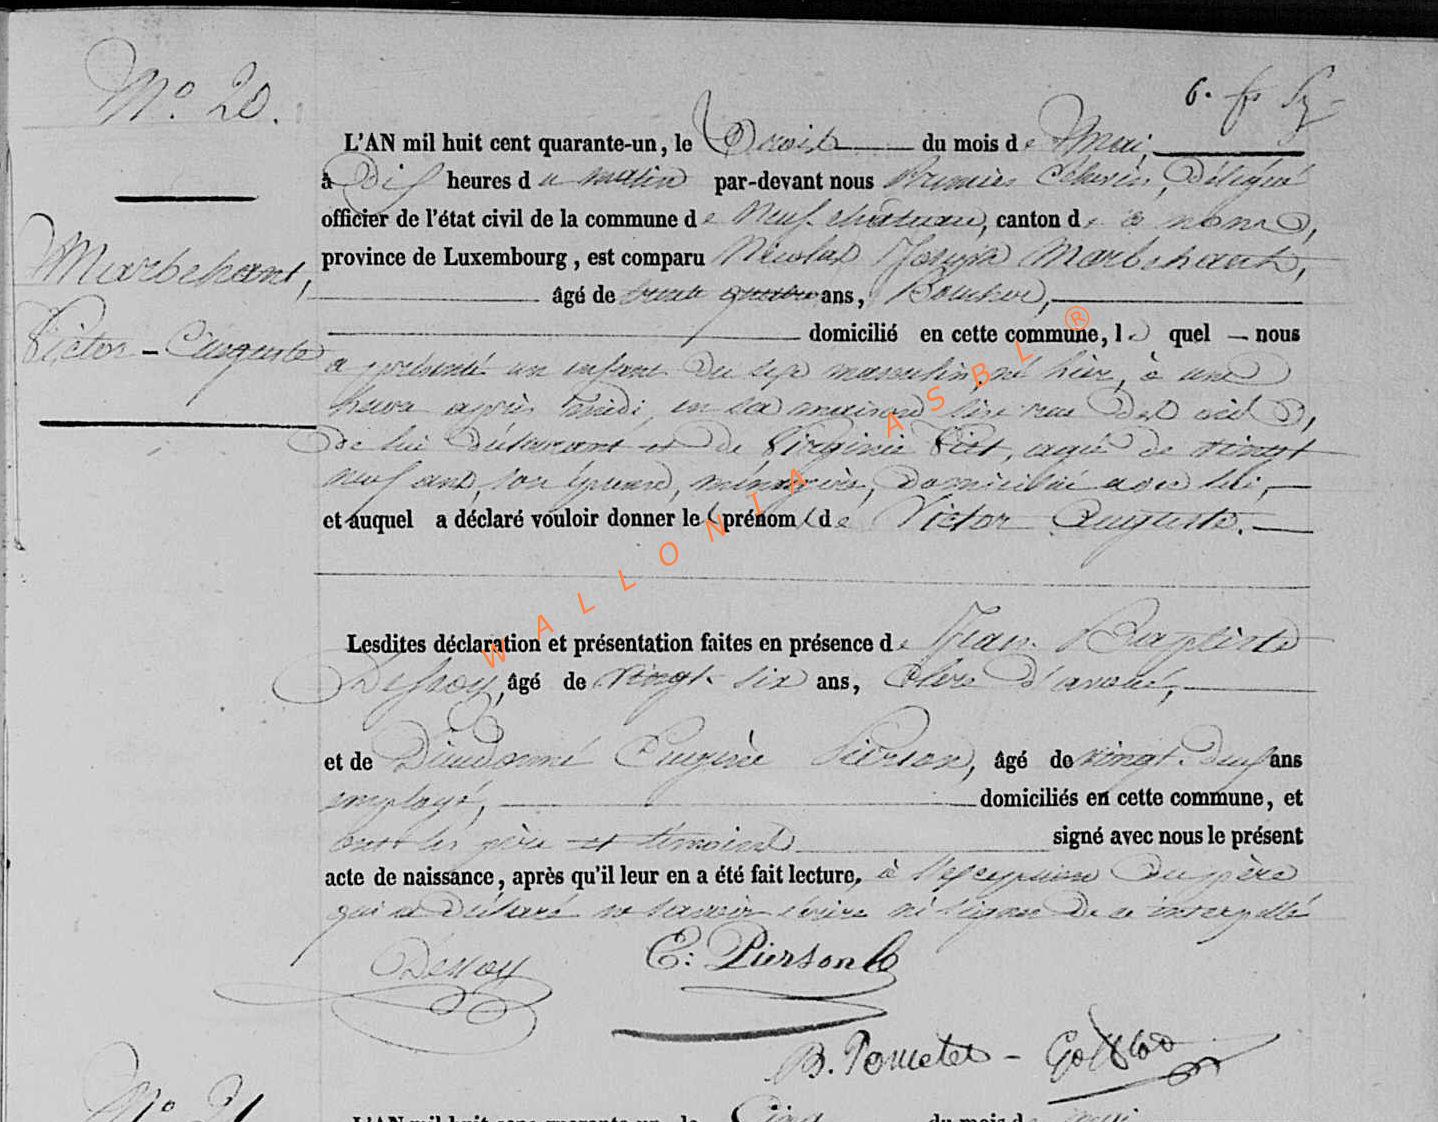 N° 20.
Marbehant,
Victor - Auguste
L'AN mil huit cent quarante-un, le Trois du mois de Mai,
à Dix heures du matin par-devant nous Premier Echevin, Délégué
officier de l'état civil de la commune de Neufchâteau, canton de ce nom,
province de Luxembourg, est comparu Nicolas Joseph Marbehant,
âgé de trente quatre ans, Boucher,
domicilié en cette commune, lequel nous
a présenté un enfant du sexe masculin, né hier, à une
heure après midi, en sa maison sise rue
de lui déclarant et de Virginie, agée de vingt
neuf ans, son épouse, ménagère, domiciliée avec lui,
et auquel a déclaré vouloir donner le(s) prénom(s) de Victor Auguste.
Lesdites déclaration et présentation faites en présence de Jean Baptiste
Dessoy, âgé de vingt six ans, Clerc d'avoué,
et de Dieudonné Eugène Pierson, âgé de vingt deux ans
employé, domiciliés en cette commune, et
ont les père et témoins signé avec nous le présent
acte de naissance, après qu'il leur en a été fait lecture, à l'exception du père
qui a déclaré ne savoir écrire ni signer de ce interpellé
Dessoy E: Pierson
B. Poncelet -
N° 21
L'AN mil huit cent quarante-un, le Cinq du mois de mai
WALLONIA ASBL ®